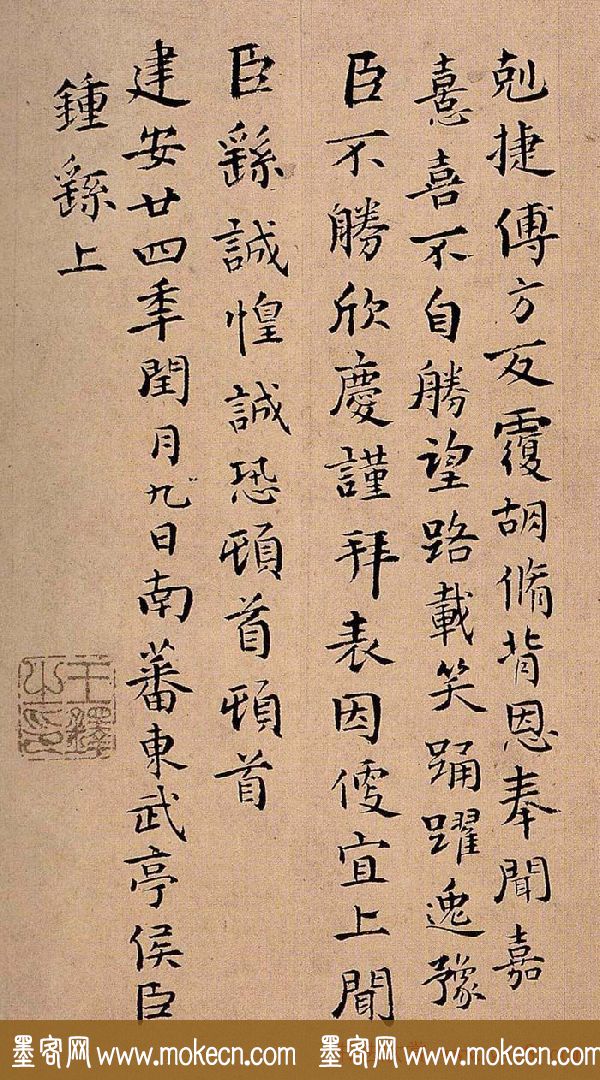 剋捷傅方反覆胡脩背恩奉聞嘉
憙喜不自勝望路載笑踊躍逸豫
臣不勝欣慶謹拜表因便宜上聞
臣繇誠惶誠恐頓首頓首
建安廿四年閏月九日南蕃東武亭侯臣
鍾繇上
王鐸之印
墨客网 www.mokecn.com 墨客网 www.mokecn.com